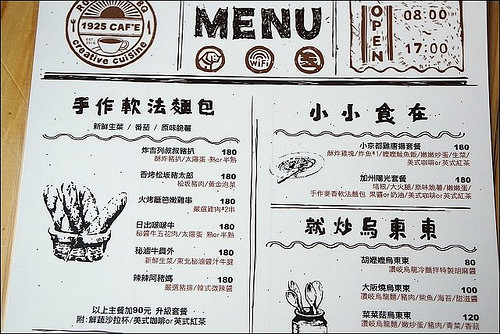 1925 CAF'E
creative cuisine
MENU
WiFi
OPEN
08:00
17:00
手作軟法麵包
新鮮生菜 / 番茄 / 原味脆薯
炸吉列叔叔豬扒 180
酥炸豬扒/太陽蛋 熟or半熟
香烤松坂豬太郎 180
松坂豬肉/黃金泡菜
火烤醬芭嫩雞串 180
嚴選雞肉*2串
日出啵啵牛 180
秘醬牛五花肉/太陽蛋 熟or半熟
秘滷牛員外 180
新鮮生菜/東北秘滷醬汁牛腱
辣辣阿豬媽 180
嚴選豬排/辣式微辣醬
以上主餐加90元 升級套餐
附:鮮蔬沙拉杯/美式咖啡or英式紅茶
小小食在
小京都雞唐揚套餐 180
美式咖啡or英式紅茶
加州陽光套餐 180
培根/大火腿/原味脆薯/嫩嫩蛋/
手作麥香軟法麵包 果醬or奶油/美式咖啡or英式紅茶
就炒烏東東
胡嬤嬤烏東東 80
讚岐烏龍冷麵拌特製胡麻醬
大阪燒烏東東 100
讚岐烏龍麵/豬肉/柴魚/海苔/甜滋醬
菜菜菇烏東東 120
讚岐烏龍麵/嫩炒蛋/豬肉/青菜/香菇